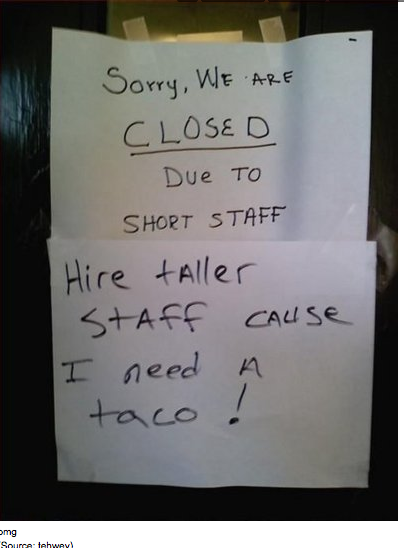 Sorry, WE ARE
CLOSED
Due TO
SHORT STAFF
Hire tAller
STAFF CAUSE
I need A
taco!
omg
(Source: tehwey)